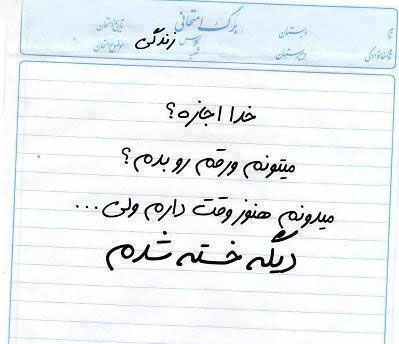 برگ امتحانی
نام دبستان تاریخ امتحان
نام خانوادگی دبیرستان درس زندگی موضوع امتحان
شعبه
خدا اجازه؟
میتونم ورقم رو بدم؟
میدونم هنوز وقت دارم ولی...
دیگه خسته شدم